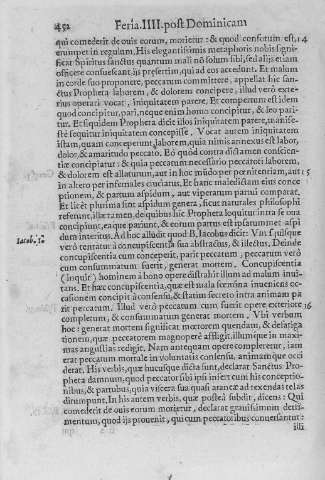 452 Feria. IIII. post Dominicam
qui comederit de ouis eorum, morietur: & quod confotum est, 14
erumpet in regulum. His elegantissimis metaphoris nobis signi-
ficat Spiritus sanctus quantum mali nō solum sibi, sed aliis etiam
officere consueſcant, iis præsertim, qui ad eos accedunt. Et malum
in corde suo proponere, peccatum committere, appellat hic san-
ctus Propheta laborem, & dolorem concipere, illud verò exte-
rius operari vocat, iniquitatem parere. Et compertum est idem
quod concipitur, pari, neque enim homo concipitur, & leo pari-
tur. Et siquidem Propheta dicit illos iniquitatem parere, manife-
stè sequitur iniquitatem concepisse. Vocat autem iniquitatem
istam, quam conceperunt, laborem, quia nimis annexus est labor,
dolor, & amaritudo peccato. Eò quod contra dictamen conscien-
tiæ concipiatur: & quia peccatum necessario peccatori laborem,
& dolorem est allaturum, aut in hoc mūdo per pœnitentiam, aut 15
in altero per infernales cruciatus. Et hanc maledictam eius conce-
ptionem, & partum aspidum, aut viperarum partui comparat.
Et licèt plurima sint aspidum genera, sicut naturales philosophi
referunt, illæ tamen, de quibus hîc Propheta loquitur intra se oua
concipiunt, eaque pariunt, & eorum partus est ipsarummet aspi-
dum interitus. Ad hoc alludit quod B. Iacobus dicit: Vnusquisque
Iacob. 1.
verò tentatur à concupiscentia sua abstractus, & illectus, Deinde
concupiscentia cum conceperit, parit peccatum, peccatum verò
cum consummatum fuerit, generat mortem. Concupiscentia
(inquit) hominem à bono opere distrahit illum ad malum inui-
tans. Et hæc concupiscentia, quæ est mala fœmina inueniens oc-
casionem concipit à consensu, & statim secreto intra animam pa
rit peccatum. Illud verò peccatum cum fuerit opere exteriore 16
completum, & consummatum generat mortem. Vbi verbum
hoc: generat mortem significat mœrorem quendam, & defatiga
tionem, quæ peccatorem magnopere affligit, illumque in maxi-
mas angustias redigit. Nam antequam opere compleretur, iam
erat peccatum mortale in voluntatis consensu, animamque occi
derat. His verbis, quæ hucusque dicta sunt, declarat Sanctus Pro-
pheta damnum, quod peccator sibi ipsi infert cum his conceptio-
nibus, & partubus, quia viscera sua quasi araneæ ad texendas telas
dirumpunt. In his autem verbis, quæ postea subdit, dicens: Qui
comederit de ouis eorum morietur, declarat grauissimum detri-
mentum, quod iis prouenit, qui cum peccatoribus conuersantur:
illi